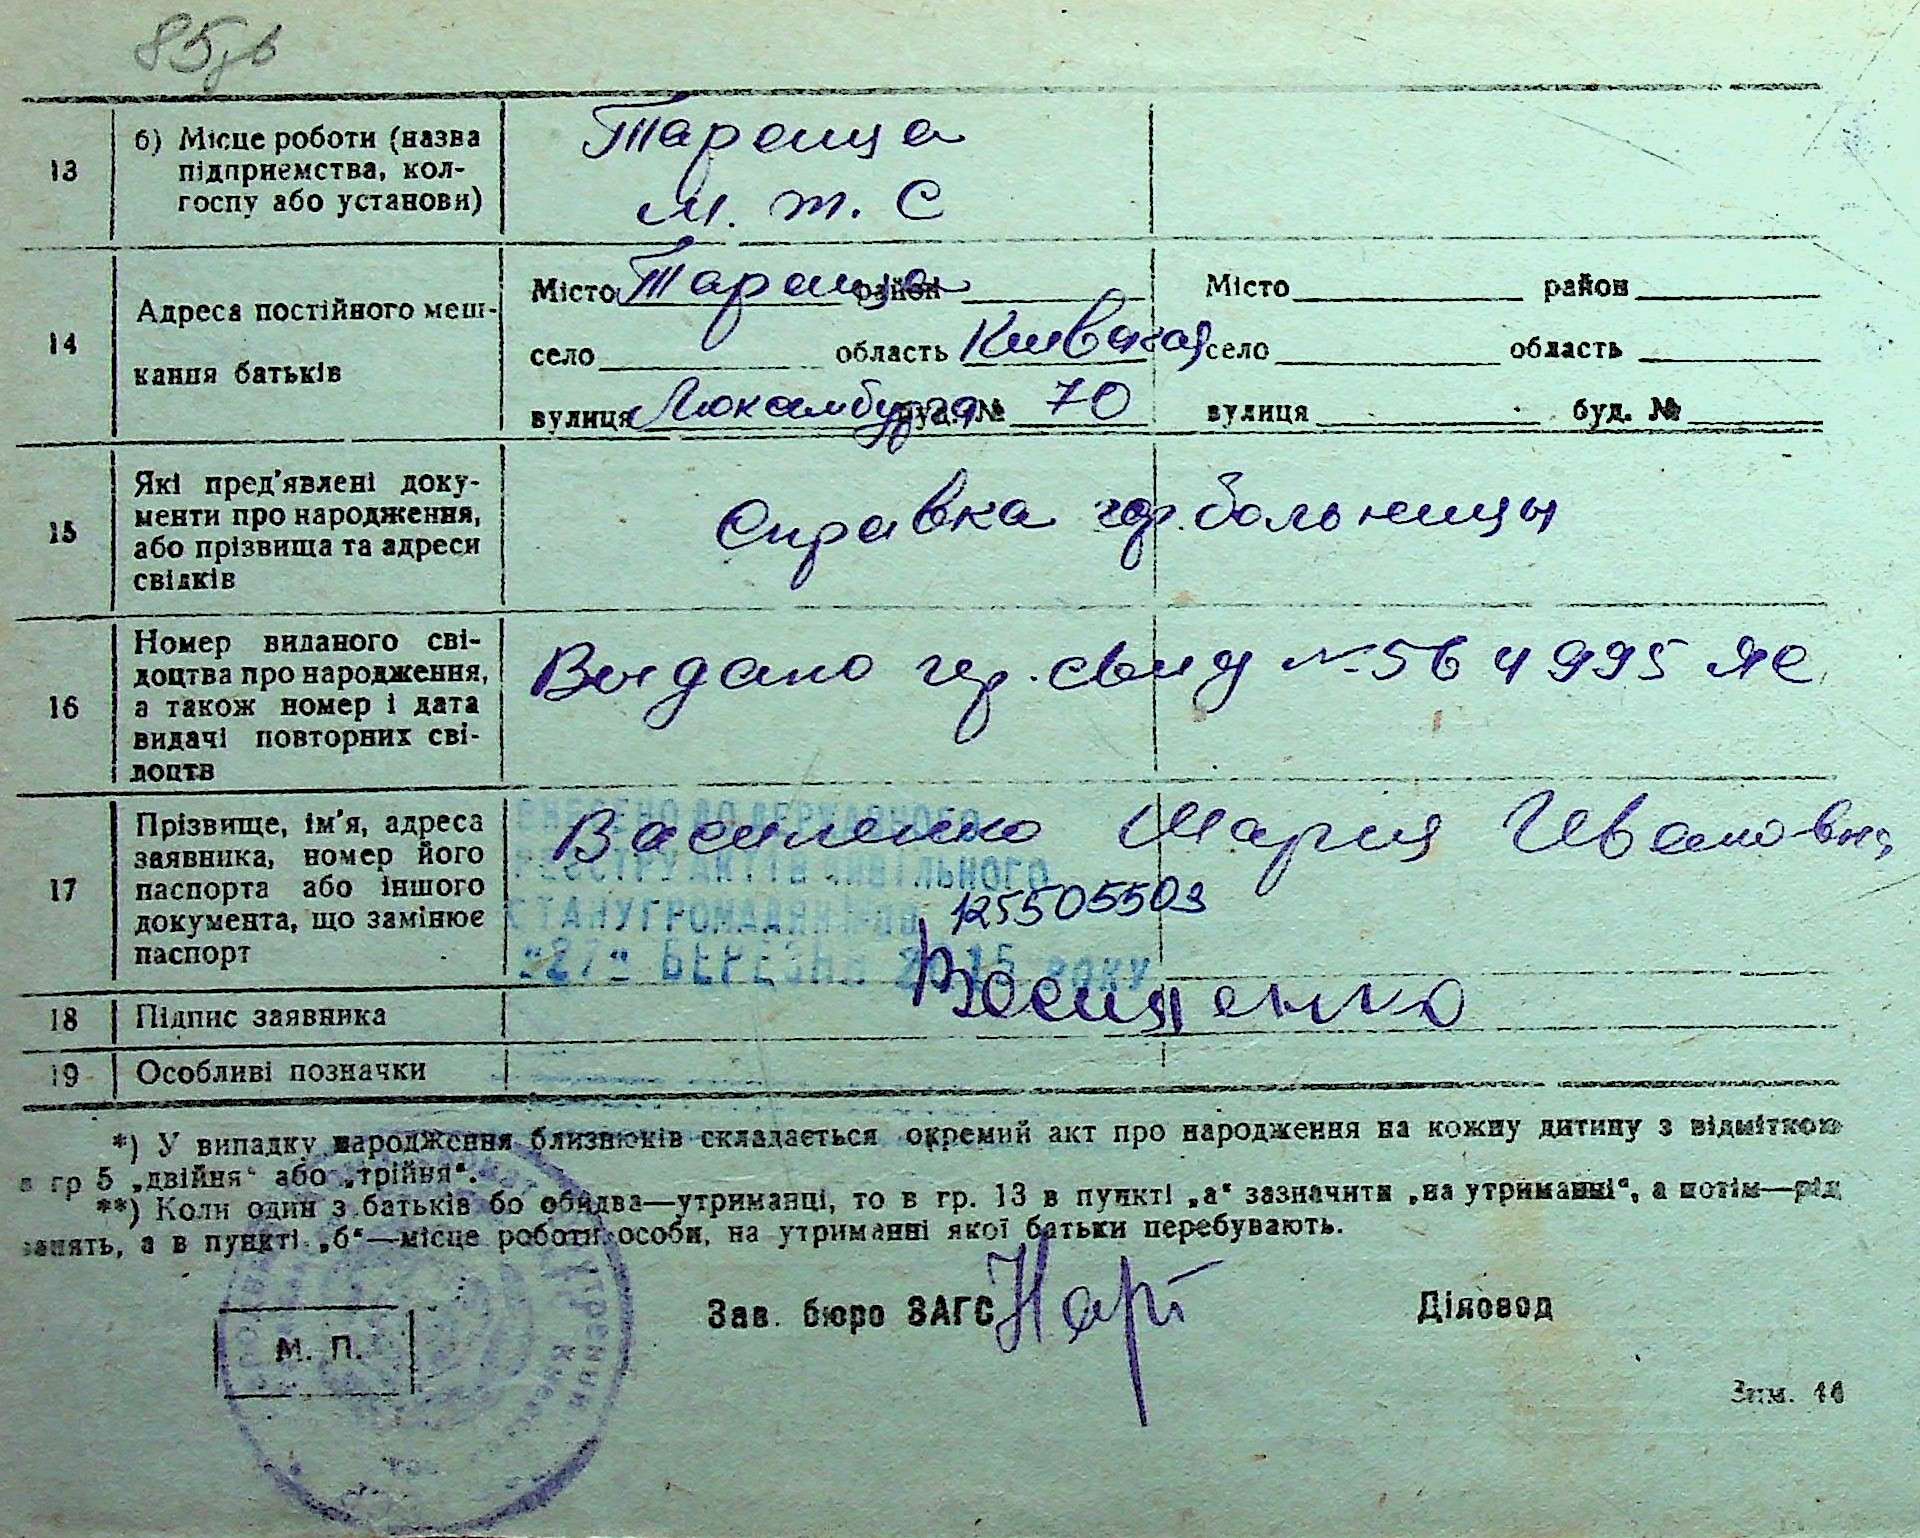 13
б) Місце роботи (назва
підприємства, кол-
госпу або установи)
Тараща
М. т. С
14
Адреса постійного меш-
кання батьків
Місто Тараща район
село область Киевская
вулиця Люксамбурга буд. № 70
Місто район
село область
вулиця буд. №
15
Які пред'явлені доку-
менти про народження,
або прізвища та адреси
свідків
Справка гор. больницы
16
Номер виданого сві-
доцтва про народження,
а також номер і дата
видачі повторних сві-
доцтв
Выдано гер. свид № 564995 ЯС
17
Прізвище, ім'я, адреса
заявника, номер його
паспорта або іншого
документа, що замінює
паспорт
ВНЕСЕНО ДО ДЕРЖАВНОГО
РЕЄСТРУ АКТІВ ЦИВІЛЬНОГО
СТАНУ ГРОМАДЯН
"27" БЕРЕЗНЯ 2015 РОКУ
Василенко Мария Ивановна
125505503
18
Підпис заявника
Василенко
19
Особливі позначки
*) У випадку народження близнюків складається окремий акт про народження на кожну дитину з відміткою
в гр 5 „двійня“ або „трійня“.
**) Коли один з батьків бо обидва—утриманці, то в гр. 13 в пункті „а“ зазначити „на утриманні“, а потім—рід
занять, а в пункті „б“—місце роботи особи, на утриманні якої батьки перебувають.
М. П.
Зав. бюро ЗАГС
Діловод
Зам. 16